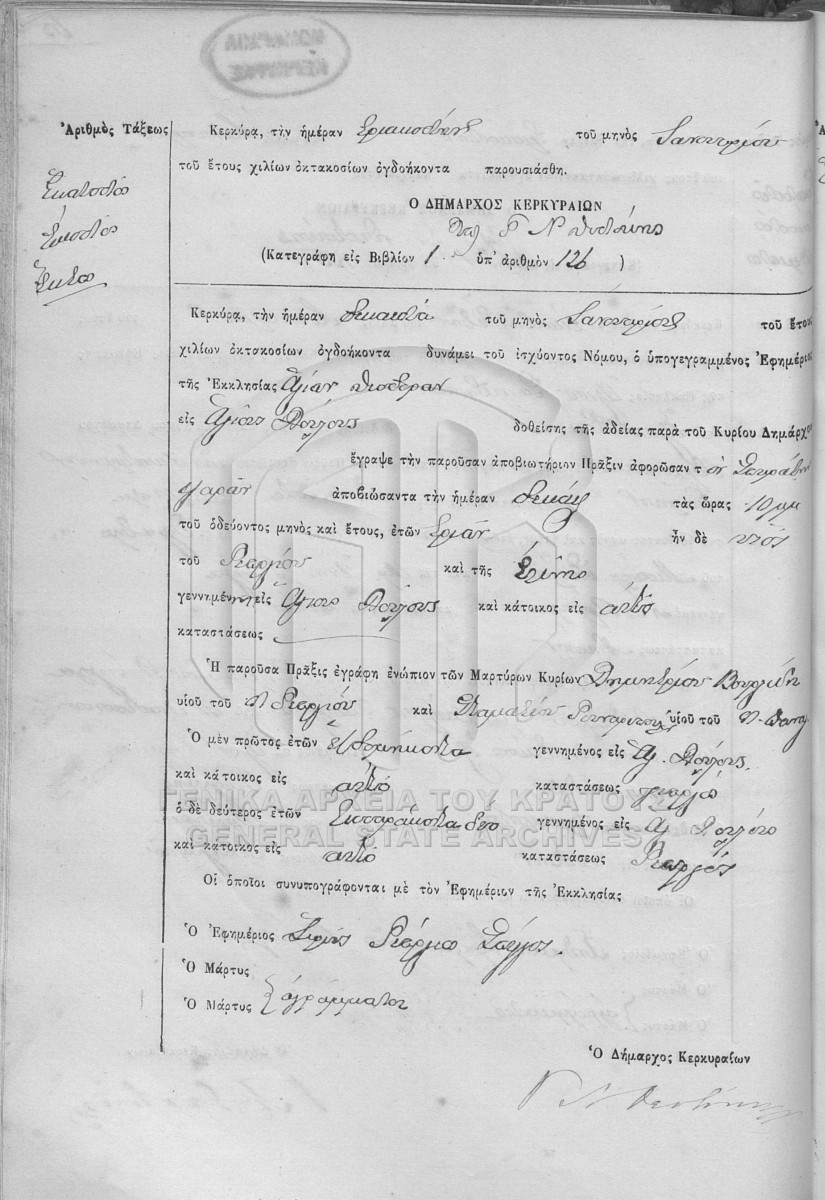 ΔΗΜΑΡΧΙΑ
ΚΕΡΚΥΡΑΣ
Ἀριθμὸς Τάξεως
Ἑκατοστὸν
Εἰκοστὸν
Ἕκτον
Κερκύρᾳ, τὴν ἡμέραν τριακοστὴν τοῦ μηνὸς Ἰανουαρίου
τοῦ ἔτους χιλίων ὀκτακοσίων ὀγδοήκοντα παρουσιάσθη.
Ο ΔΗΜΑΡΧΟΣ ΚΕΡΚΥΡΑΙΩΝ
Γ Ν
(Κατεγράφη εἰς Βιβλίον 1. ὑπ' ἀριθμὸν 126 )
Κερκύρᾳ, τὴν ἡμέραν δεκάτην τοῦ μηνὸς Ἰανουαρίου τοῦ ἔτους
χιλίων ὀκτακοσίων ὀγδοήκοντα δυνάμει τοῦ ἰσχύοντος Νόμου, ὁ ὑπογεγραμμένος Ἐφημέριος
τῆς Ἐκκλησίας
εἰς Ἁγίους δοθείσης τῆς ἀδείας παρὰ τοῦ Κυρίου Δημάρχου
ἔγραψε τὴν παροῦσαν ἀποβιωτήριον Πρᾶξιν ἀφορῶσαν τ ὸν
ἀποβιώσαντα τὴν ἡμέραν δεκάτη τὰς ὥρας 10 μμ
τοῦ ὁδεύοντος μηνὸς καὶ ἔτους, ἐτῶν τριῶν ἦν δὲ υἱὸς
τοῦ Γεωργίου καὶ τῆς Ἑλένης
γεννημένη εἰς Ἁγίους καὶ κάτοικος εἰς αὐτὸ
καταστάσεως
Ἡ παροῦσα Πρᾶξις ἐγράφη ἐνώπιον τῶν Μαρτύρων Κυρίων Δημητρίου
υἱοῦ τοῦ Γεωργίου καὶ Σταματίου υἱοῦ τοῦ
Ὁ μὲν πρῶτος ἐτῶν ἑβδομήκοντα γεννημένος εἰς Ἁγ.
καὶ κάτοικος εἰς αὐτὸ καταστάσεως γεωργὸς
ὁ δὲ δεύτερος ἐτῶν τεσσαράκοντα δύο γεννημένος εἰς Ἁγ
καὶ κάτοικος εἰς αὐτὸ καταστάσεως γεωργὸς
Οἱ ὁποῖοι συνυπογράφονται μὲ τὸν Ἐφημέριον τῆς Ἐκκλησίας
Ὁ Ἐφημέριος Ἱερεὺς Γεώργιος
Ὁ Μάρτυς
Ὁ Μάρτυς ἀγράμματοι
Ὁ Δήμαρχος Κερκυραίων
Γ Ν
ΓΕΝΙΚΑ ΑΡΧΕΙΑ ΤΟΥ ΚΡΑΤΟΥΣ
GENERAL STATE ARCHIVES